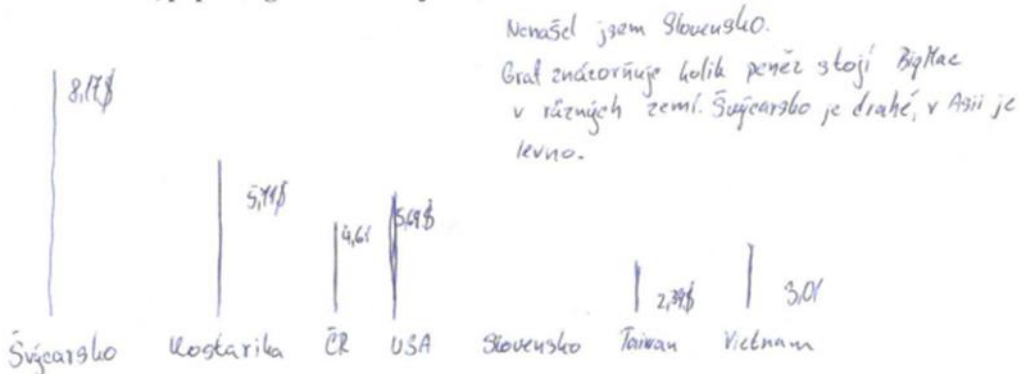 Nenašel jsem Slovensko.
Graf znázorňuje kolik peněz stojí BigMac
v různých zemí. Švýcarsko je drahé, v Asii je
levno.
8,17$
5,69$
4,61
2,39$
3,01
Švýcarsko Kostarika ČR USA Slovensko Taiwan Vietnam